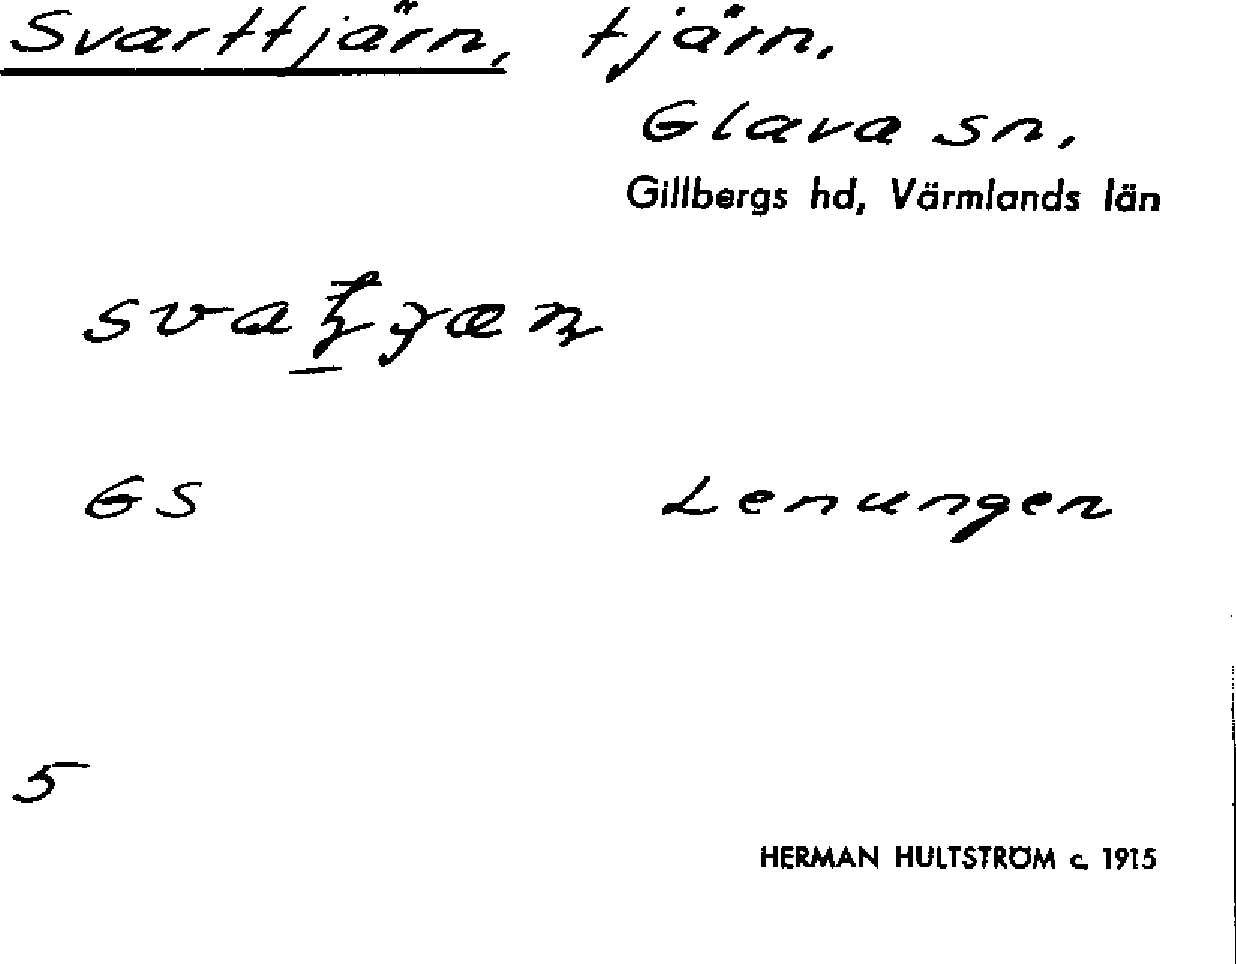 Svarttjärn, tjärn.
Glava sn,
Gillbergs hd, Värmlands län
GS Lenungen
5
HERMAN HULTSTRÖM c. 1915